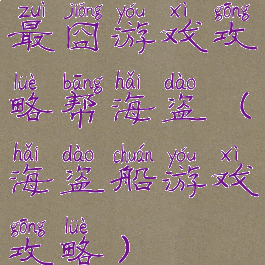 zuì jiǒng yóu xì gōng
最囧游戏攻
lüè bāng hǎi dào
略帮海盗（
hǎi dào chuán yóu xì
海盗船游戏
gōng lüè
攻略）